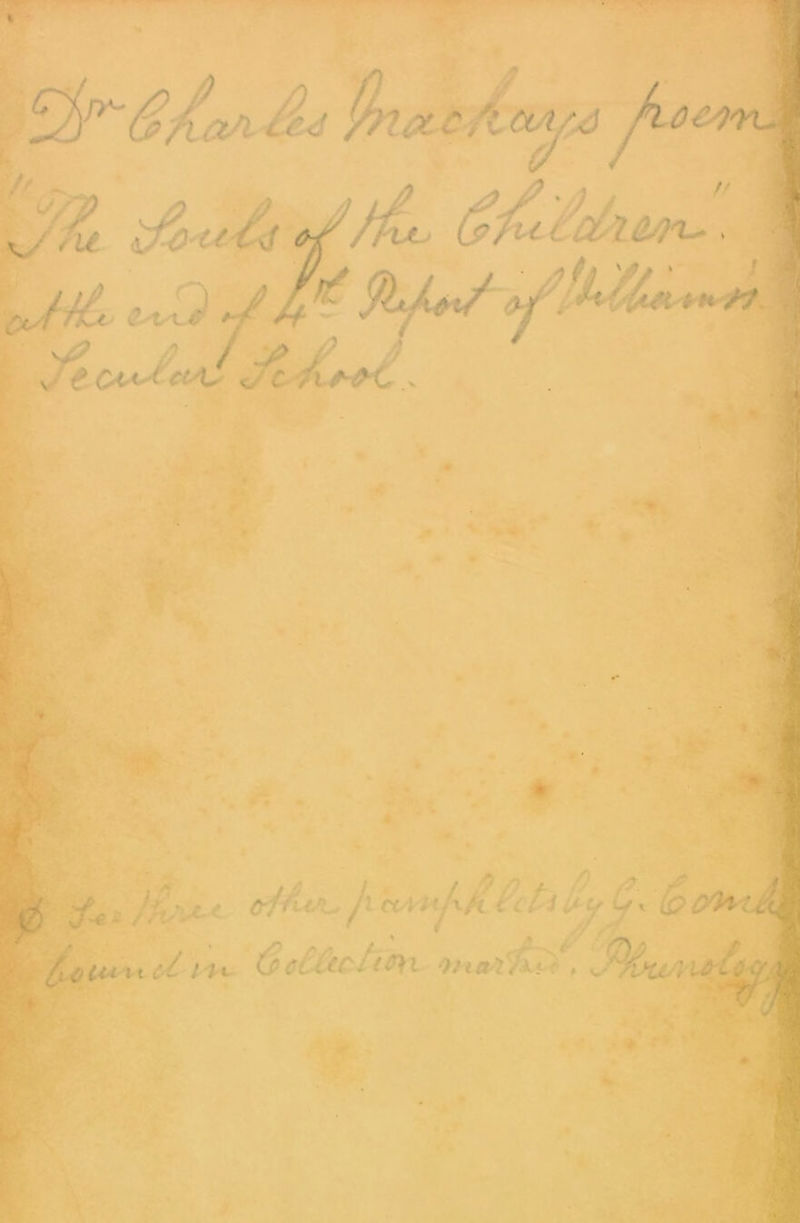 Dr Charles Mackays poem
"The Souls of the Children".
at the end of 4th Report of William's
Secular School.
ø See three other pamphlets by G. Combe
bound in Collection marked. Phrenology